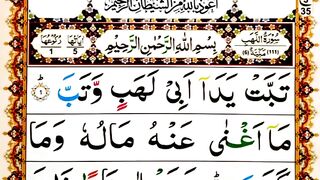 أعوذ بالله من الشيطان الرجيم
35
سُوْرَةُ اللَّهَب
(111) مَكِّيَّةٌ (6)
بِسْمِ اللّٰهِ الرَّحْمٰنِ الرَّحِيْمِ
اٰيَاتُهَا 5
رُكُوْعُهَا 1
تَبَّتْ يَدَآ اَبِيْ لَهَبٍ وَّتَبَّ ؕ ۱
مَآ اَغْنٰى عَنْهُ مَالُهٗ وَمَا